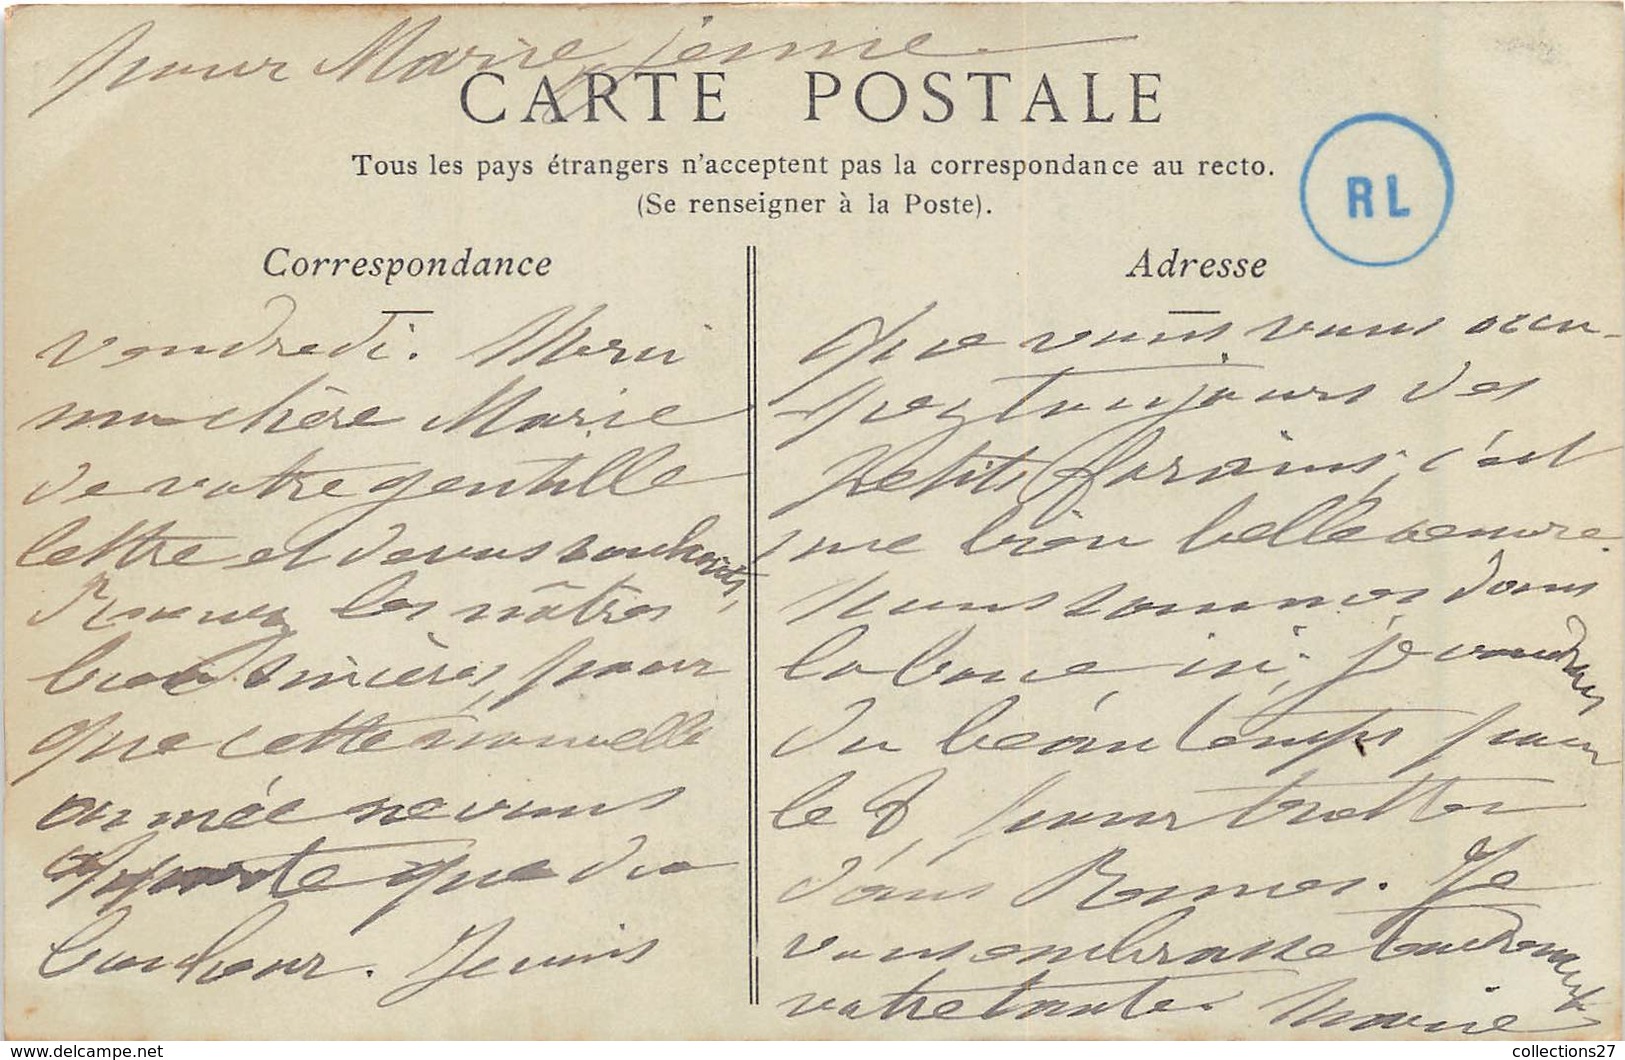 pour Marie jenne
CARTE POSTALE
Tous les pays étrangers n'acceptent pas la correspondance au recto.
(Se renseigner à la Poste).
RL
Correspondance
vendredi. Merci
ma chère Marie
de votre gentille
lettre et de vos souhaits,
les nôtres
bien sincères, pour
que cette nouvelle
année ne vous
apporte que du
bonheur. Je vois
Adresse
que vous vous occu-
pez toujours des
petits forains, c'est
une bien belle oeuvre.
nous sommes dans
la boue ici, je voudrais
du beau temps pour
le 8, pour trotter
dans Rennes. Je
vous embrasse tendrement
votre tante Marie
collections27